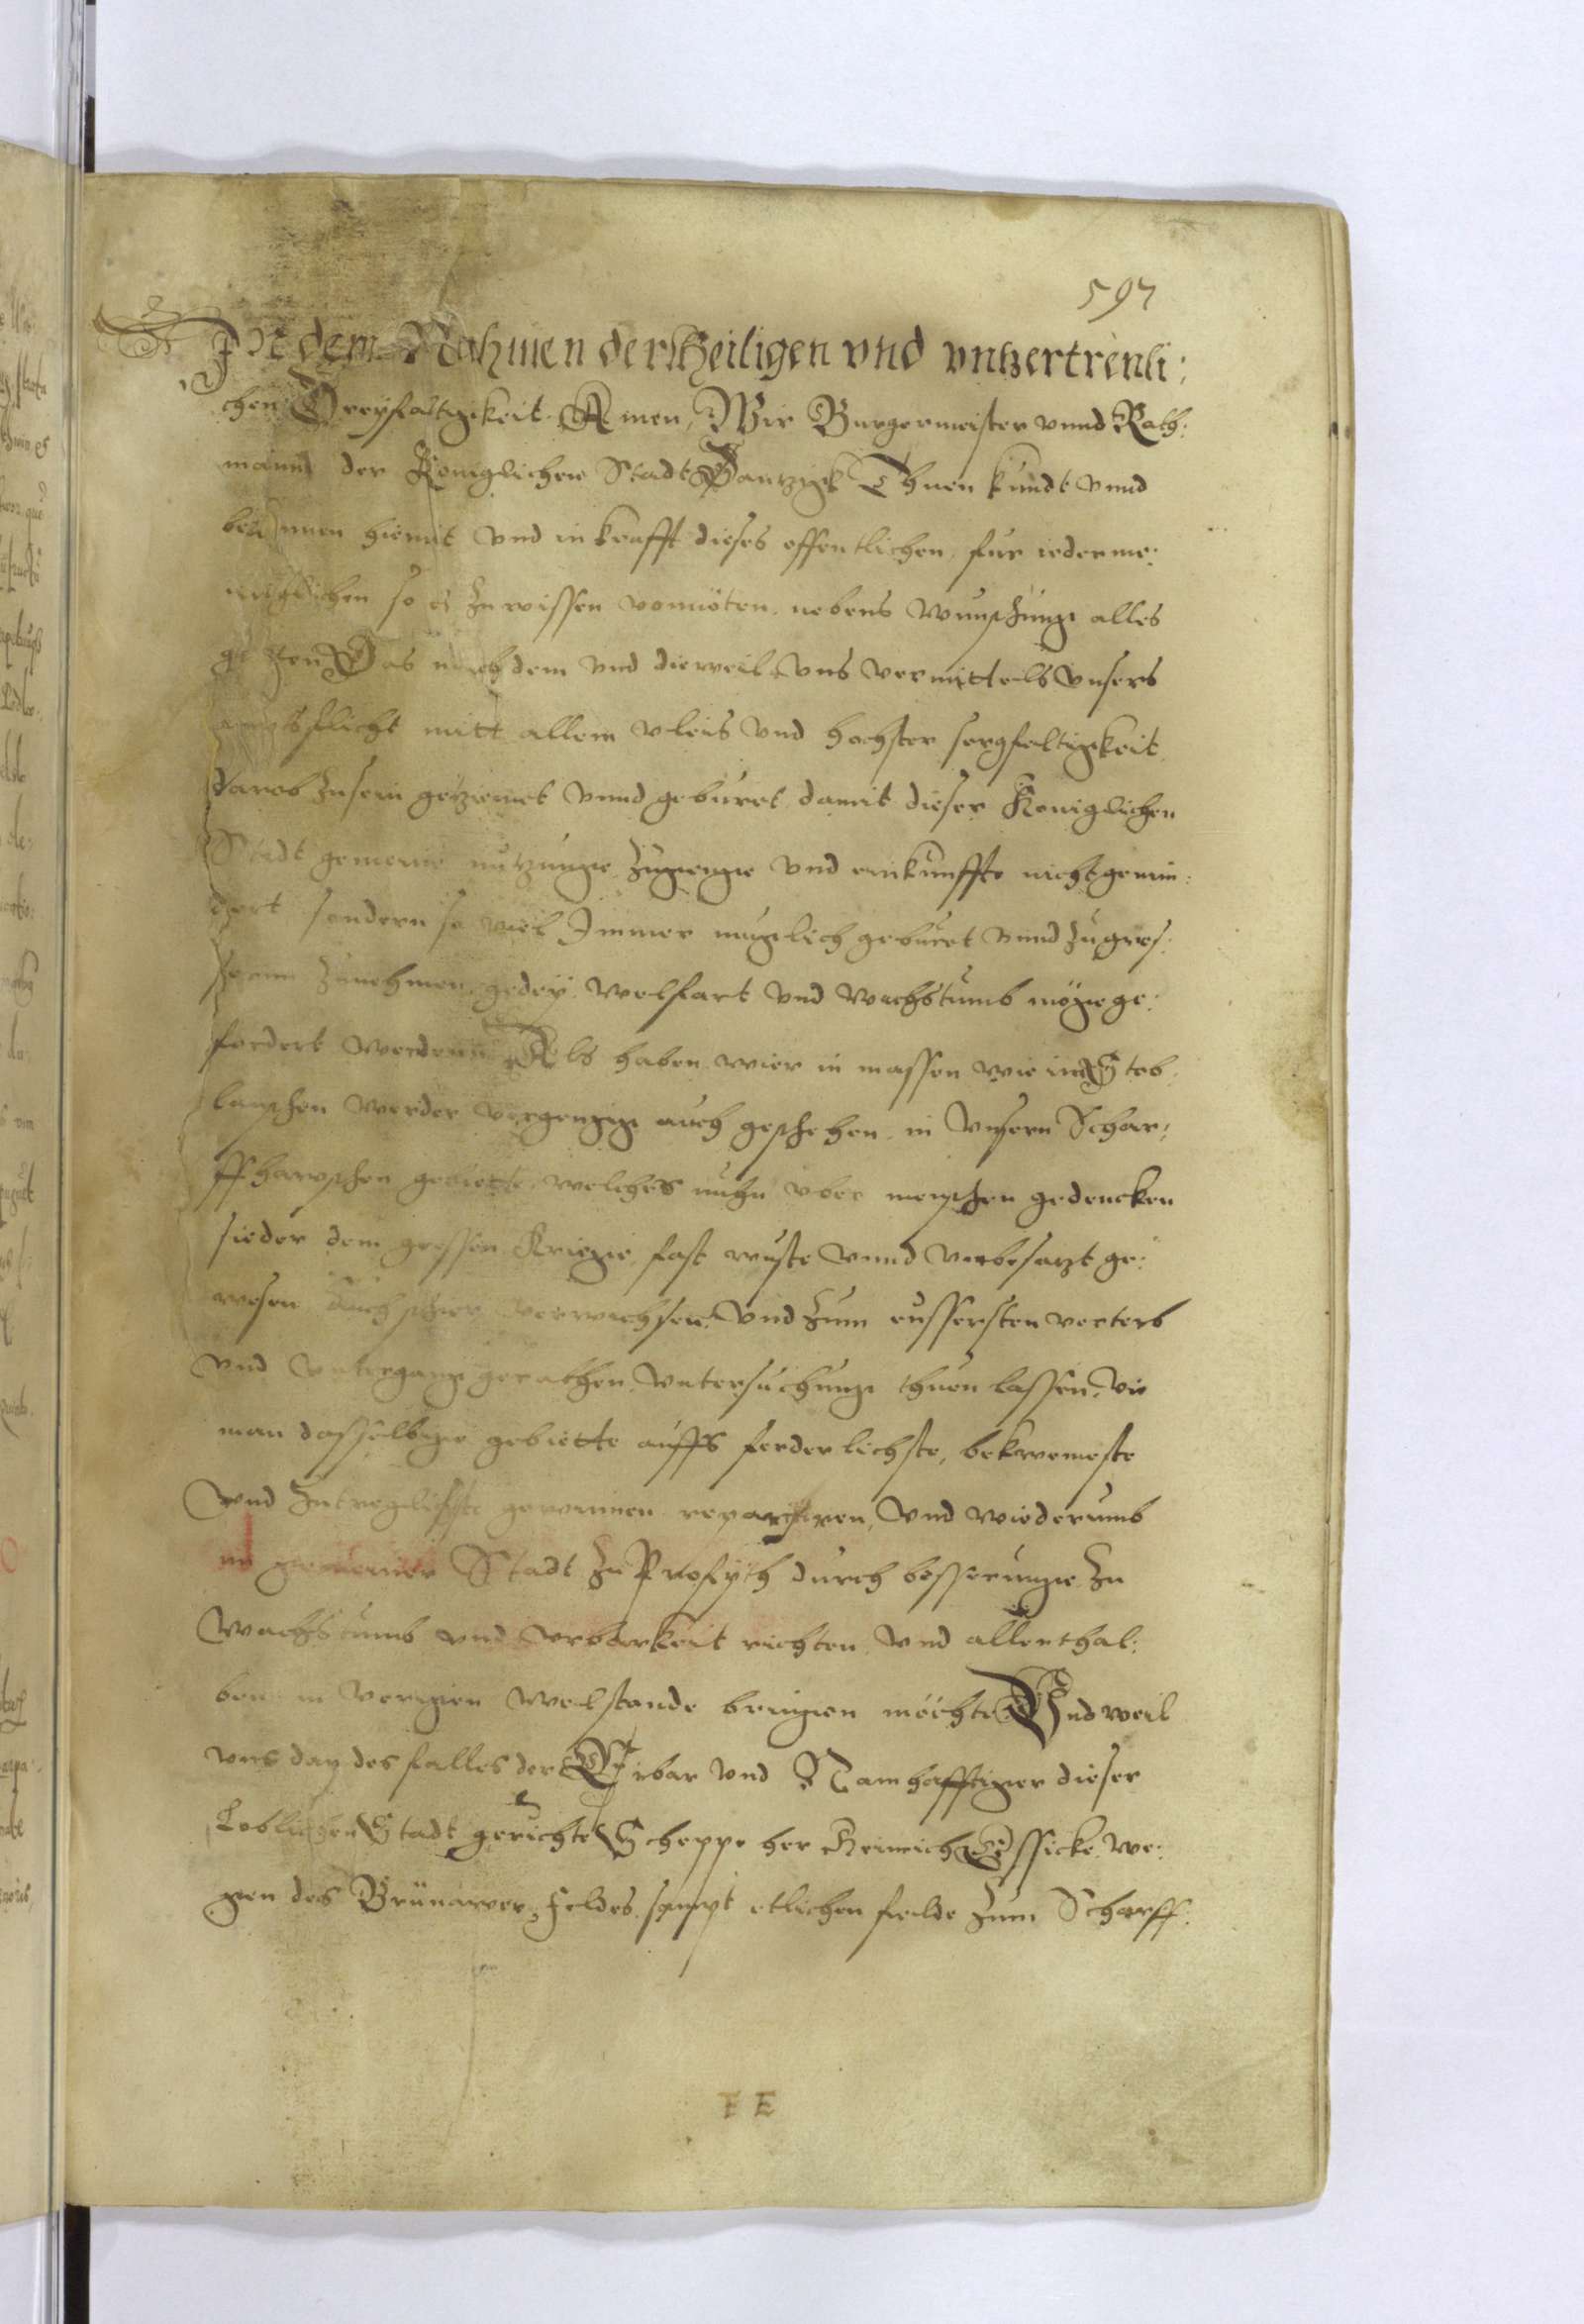 597
In dem Nahmen der Heiligen vnd vntzertrenli:
chen Dreyfaltigkeit Amen, Wir Burgermeister vnnd Rath:
mann der Koniglichen Stadt Dantzigk Thuen kundt vnnd
hiemit vnd in krafft dieses offentlichen fur iederme:
nniglichen so es zu wissen vonnöten nebens wunschunge alles
gutten Das nachdem vnd dieweil vns vermittels vnsers
amptspflicht mitt allem vleis vnd hochster sorgfeltigkeit
darob zu sein getziemet vnnd geburet damit dieser Koniglichen
Stadt gemeine nutzunge zugenge vnd einkunffte nicht gemin:
dert sondern so viel Immer muglich geburet vnnd zu gros:
serm zunehmen gedey wolfart vnd wachstumb möge ge:
fordert werdenn Als haben wier in massen wie im Steb:
lauschen werder vergengig auch geschehen in vnsern Schar:
ffhawschen gebiette welches nuhn vber menschen gedencken
sieder dem grossen Kriege fast wuste vnnd vnbesatzt ge:
wesen auch schier verwachsen vnd zum eussersten verterb
vnd vntergang gerathen vntersuchunge thuen lassen, wie
man dasselbige gebiette auffs forderlichste, bekwemeste
vnd zutreglichste gewinnen repariren, vnd wiederumb
gemeiner Stadt zu Profyth durch besserunge zu
wachstumb vnd vrbarkeit richten vnd allenthal:
ben in vorigen wolstande bringen möchte Vnd weil
vns dan des falles der Erbar vnd Namhafftiger dieser
Loblichen Stadt gerichte Scheppe her Heinrich we:
gen des Grünawer Feldes sampt etlichen felde zum Scharff:
EE